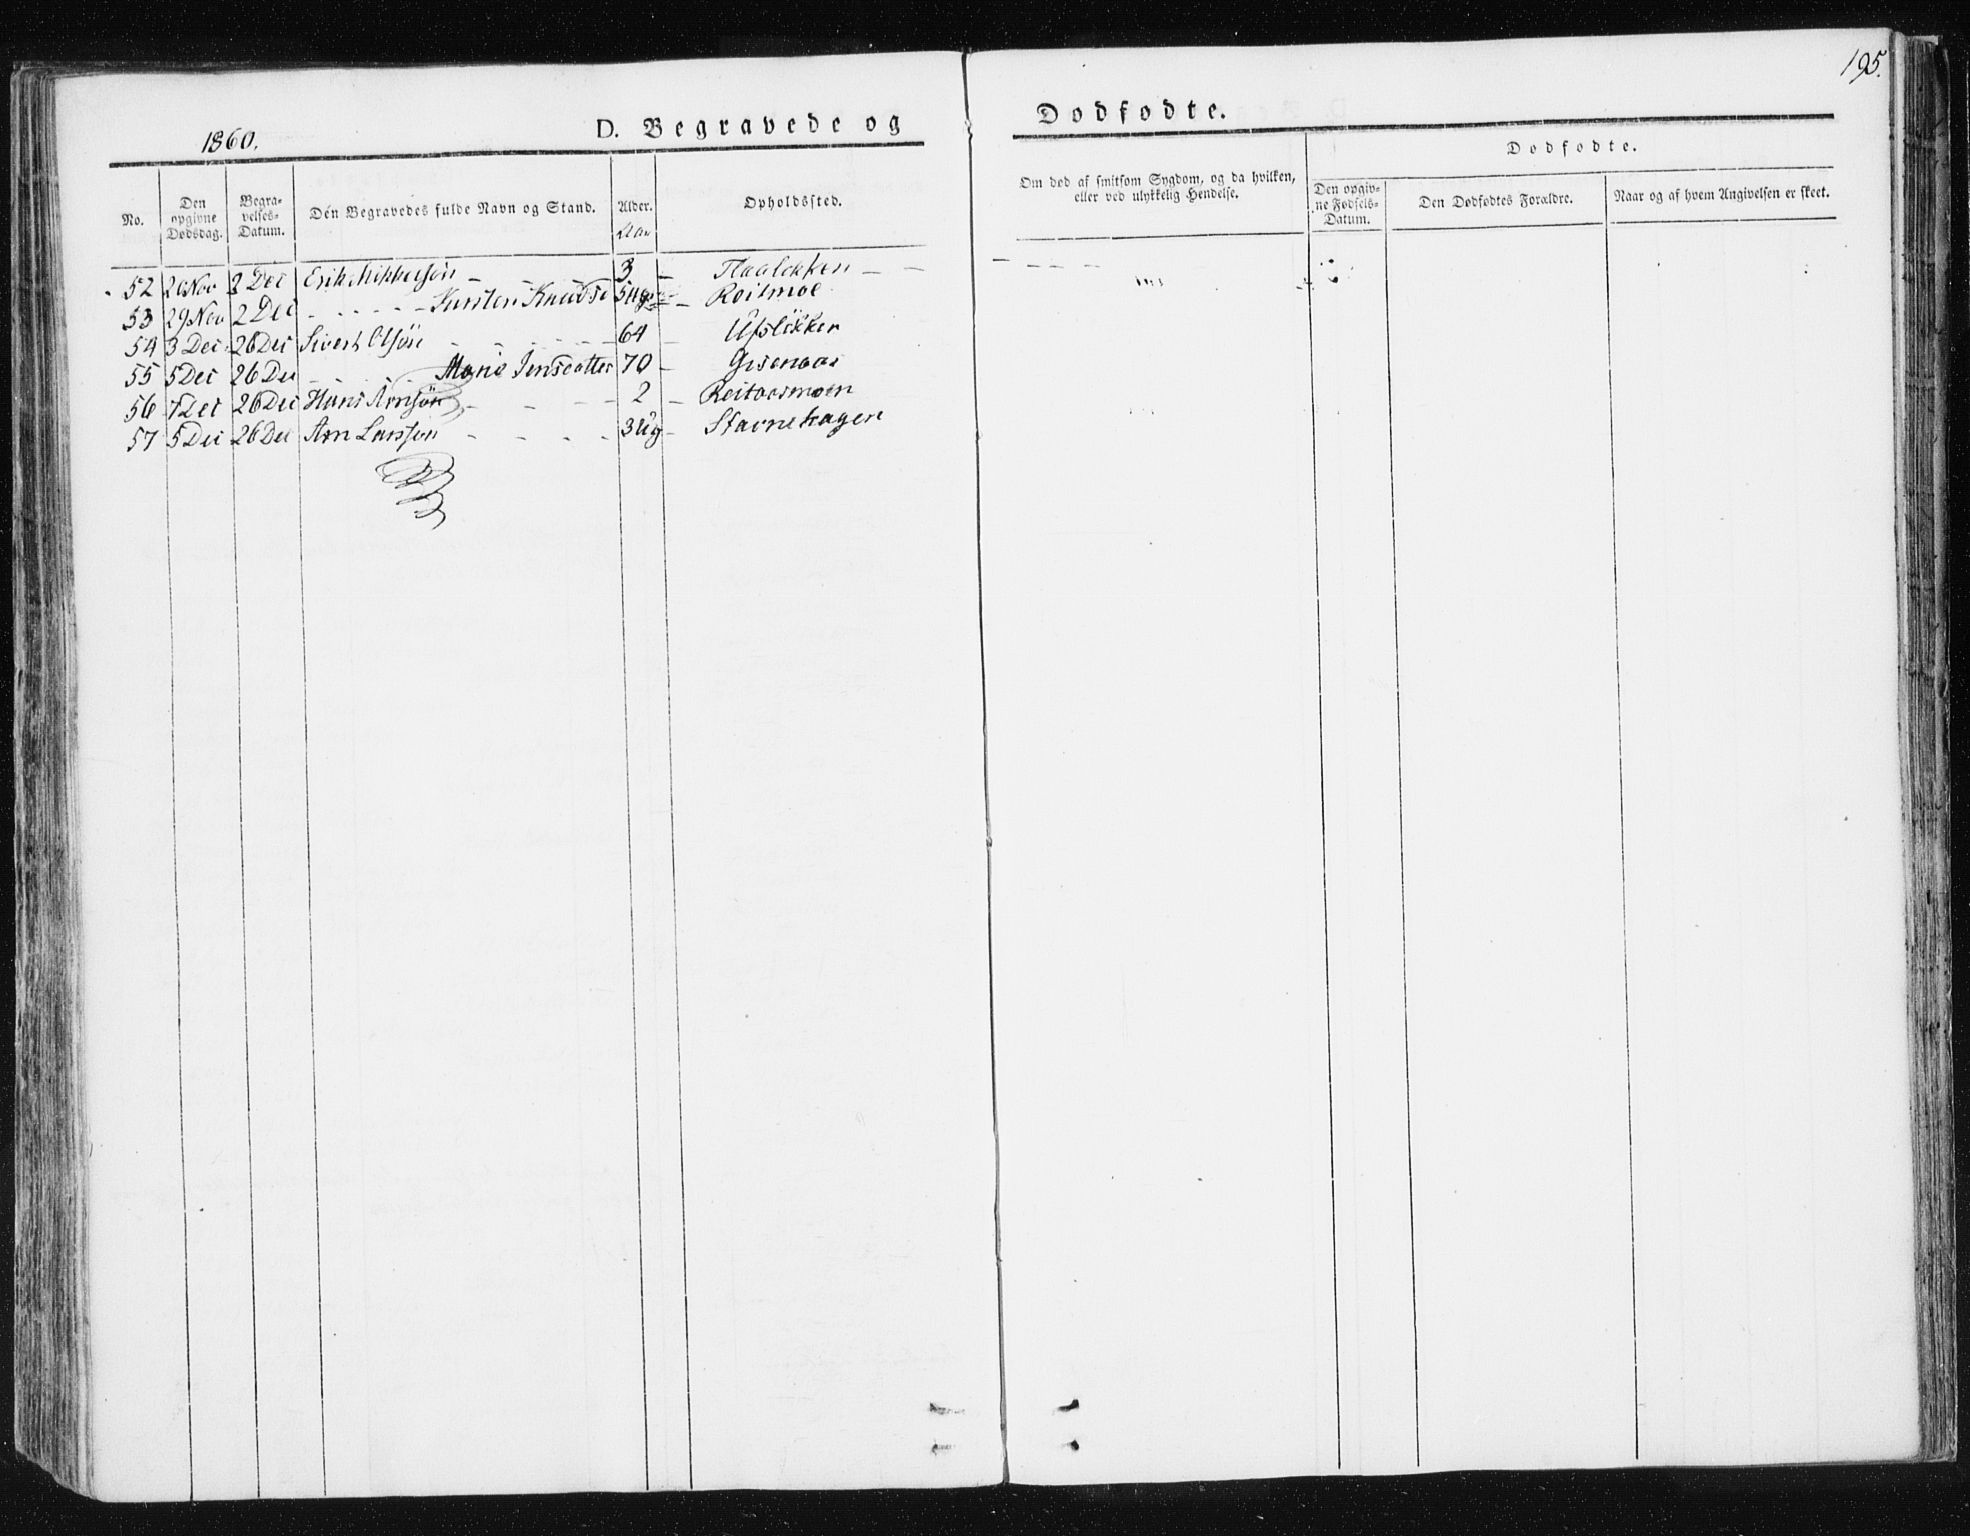 195.
1860.
D. Begravede og Dødfødte.
No.
Den opgivne Dødsdag.
Begravelses-Datum.
Den Begravedes fulde Navn og Stand.
Alder.
Aar
Opholdssted.
Om død af smitsom Sygdom, og da hvilken, eller ved ulykkelig Hendelse.
Dødfødte.
Den opgivne Fødsels-Datum.
Den Dødfødtes Forældre.
Naar og af hvem Angivelsen er skeet.
52 Nov 2 Dec Erik Mikkelsön 3
53 29 Nov 2 Dec Knudsd Roilmoe
54 3 Dec 26 Dec Sivert Olsön 64
55 5 Dec 26 Dec Jensdatter 70 Gisenaas
56 7 Dec 26 Dec Hans Arnsön 2 Reitaasmoen
57 5 Dec 26 Dec Arn Larsson 3 Ug Stavnehagen